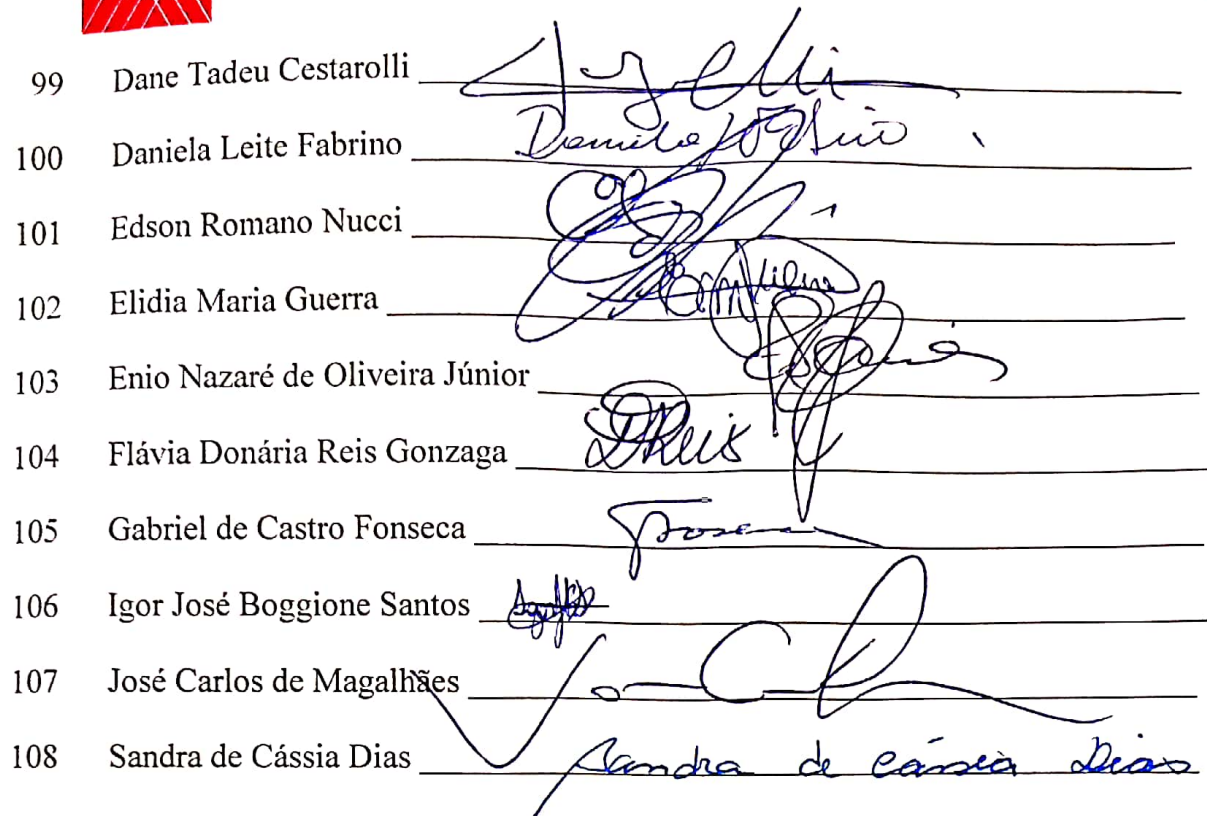 99 Dane Tadeu Cestarolli
100 Daniela Leite Fabrino
101 Edson Romano Nucci
102 Elidia Maria Guerra
103 Enio Nazaré de Oliveira Júnior
104 Flávia Donária Reis Gonzaga DReis
105 Gabriel de Castro Fonseca
106 Igor José Boggione Santos
107 José Carlos de Magalhães
108 Sandra de Cássia Dias Sandra de Cássia Dias